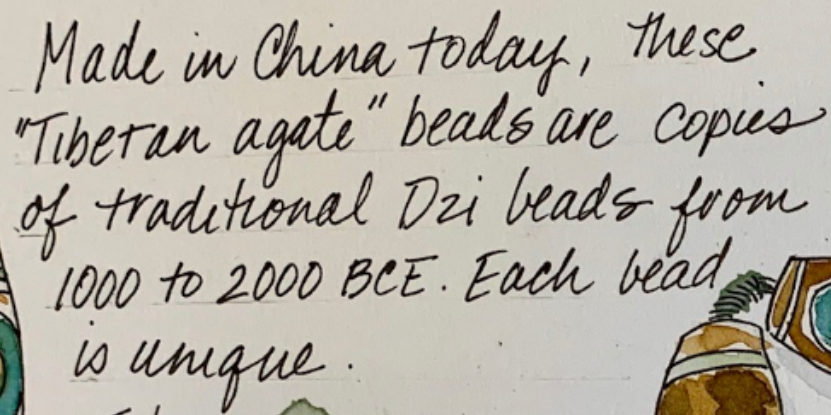 Made in China today, these
"Tibetan agate" beads are copies
of traditional Dzi beads from
1000 to 2000 BCE. Each bead
is unique.